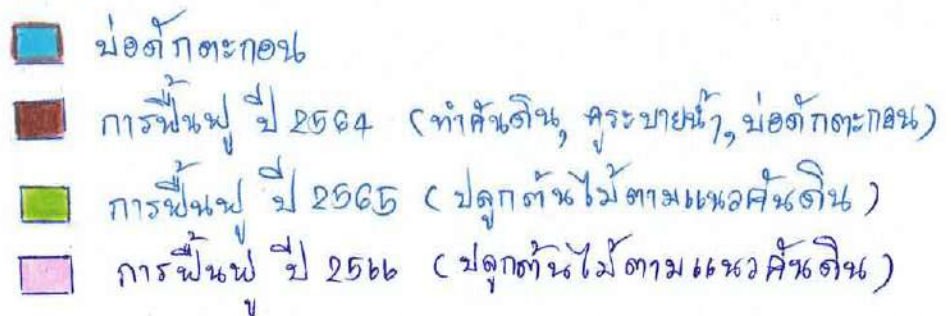 บ่อดักตะกอน
การฟื้นฟู ปี 2564 (ทำคันดิน, คูระบายน้ำ, บ่อดักตะกอน)
การฟื้นฟู ปี 2565 (ปลูกต้นไม้ตามแนวคันดิน)
การฟื้นฟู ปี 2566 (ปลูกต้นไม้ตามแนวคันดิน)